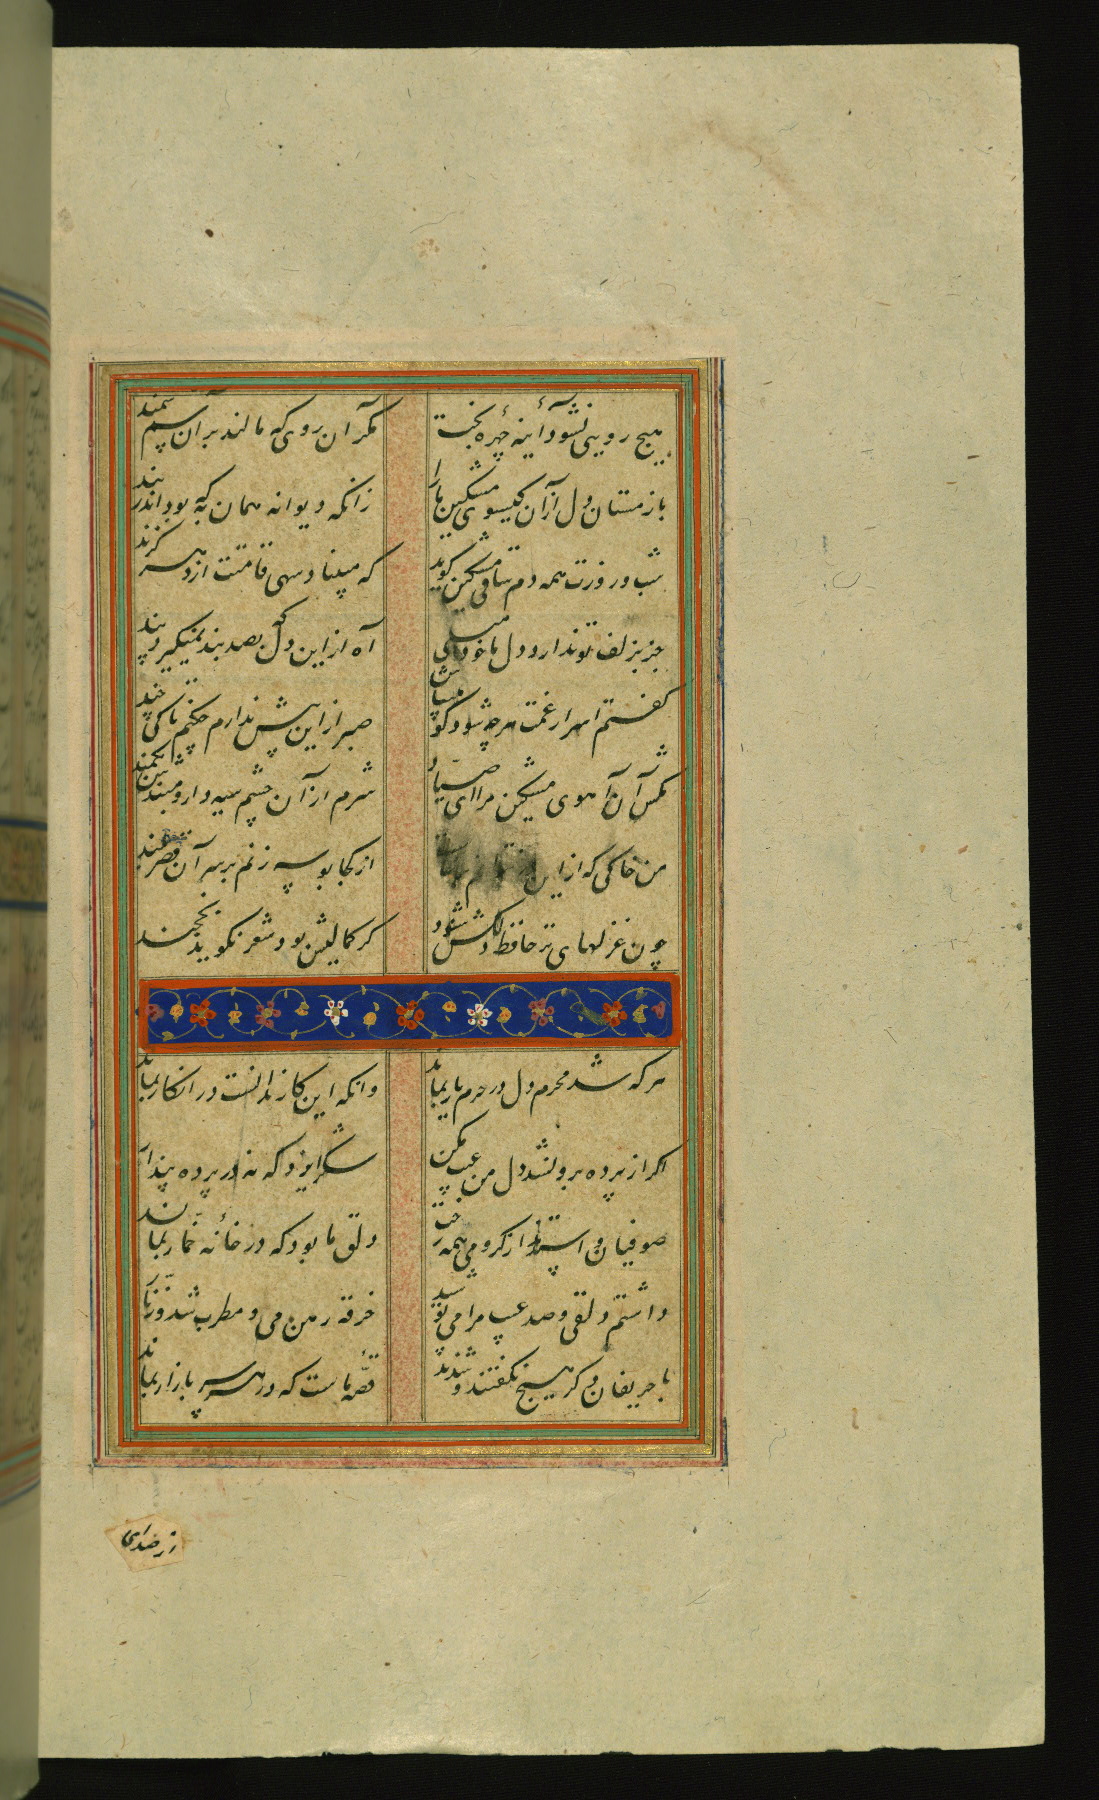 هیچ رویی نشود آینه چهره بخت مگر آن روی که مالند بر آن سم سمند
باز مستان دل از آن گیسوی مشکین ما را زانکه دیوانه همان به که بود اندر بند
که مبیناد سهی قامتت از دهر گزند
جز بزلف تو ندارد دل ما خود میلی آه از این دل که بصد بند نمیگیرد پند
گفتم اسرار غمت هر چه شود گو میباش صبر از این بیش ندارم چکنم تا کی و چند
مکش آن آهوی مشکین مرا ای صیاد شرم از آن چشم سیه دار و مبندش بکمند
من خاکی که از این از کجا بوسه زنم بر سر آن قصر بلند
چون غزلهای تر حافظ دلکش شنود گر کمالیش بود شعر نگوید بخجند
هر که شد محرم دل در حرم یار بماند وانکه این کار ندانست در انکار بماند
اگر از پرده برون شد دل من عیب مکن شکر ایزد که نه در پرده پندار بماند
صوفیان وا ستدند از گرو می همه رخت دلق ما بود که در خانه خمار بماند
داشتم دلقی و صد عیب مرا می پوشید خرقه رهن می و مطرب شد و زنار بماند
با حریفان دگر هیچ نگفتند و شدند قصه ماست که در هر سر بازار بماند